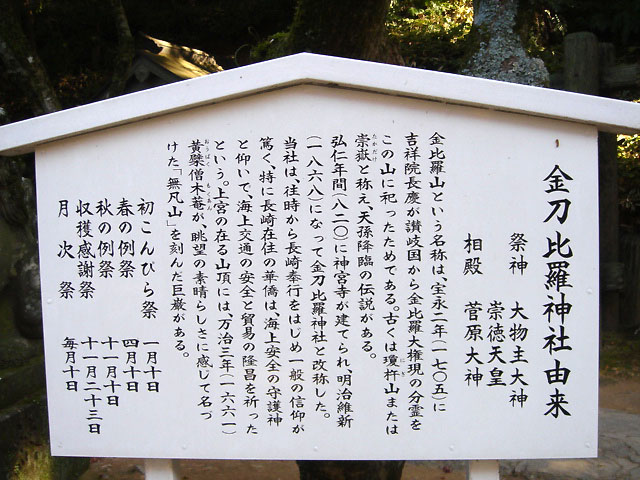 金刀比羅神社由来
祭神 大物主大神
崇徳天皇
相殿 菅原大神
金比羅山という名称は、宝永二年(一七〇五)に
吉祥院長慶が讃岐国から金比羅大権現の分霊を
この山に祀ったためである。古くは瓊杵山または
崇嶽と称え、天孫降臨の伝説がある。
弘仁年間(八二〇)に神宮寺が建てられ、明治維新
(一八六八)になって金刀比羅神社と改称した。
当社は、往時から長崎奉行をはじめ一般の信仰が
篤く、特に長崎在住の華僑は、海上安全の守護神
と仰いで、海上交通の安全と貿易の隆昌を祈った
という。上宮の在る山頂には、万治三年(一六六一)
黄檗僧木菴が、眺望の素晴らしさに感じて名づ
けた「無凡山」を刻んだ巨巌がある。
初こんぴら祭 一月十日
春の例祭 四月十日
秋の例祭 十一月十日
収穫感謝祭 十一月二十三日
月次祭 毎月十日